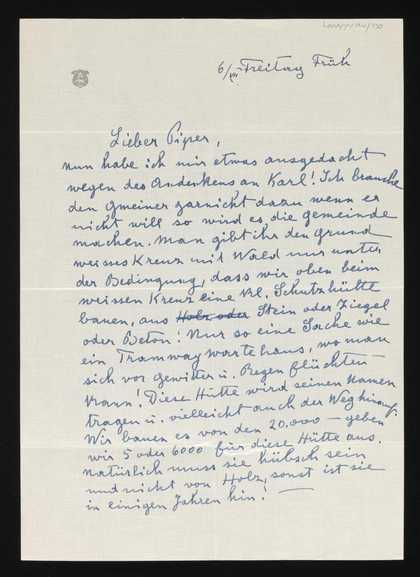 6/XII Freitag Früh
Lieber Piper,
nun habe ich mir etwas ausgedacht
wegen des Andenkens an Karl! Ich brauche
den Gmeiner garnicht dazu wenn er
nicht will so wird es die Gemeinde
machen. Man gibt ihr den Grund
weisses Kreuz mit Wald nur unter
der Bedingung, dass wir oben beim
weissen Kreuz eine kl. Schutzhütte
bauen, aus Holz oder Stein oder Ziegel
oder Beton! Nur so eine Sache wie
ein Tramway wartehaus, wo man
sich vor Gewitter u. Regen flüchten
kann! Diese Hütte wird seinen Namen
tragen u. vielleicht auch der Weg hinauf.
Wir bauen es von den 20.000 — geben
wir 5 oder 6000 für diese Hütte aus.
Natürlich muss sie hübsch sein
und nicht von Holz, sonst ist sie
in einigen Jahren hin! —